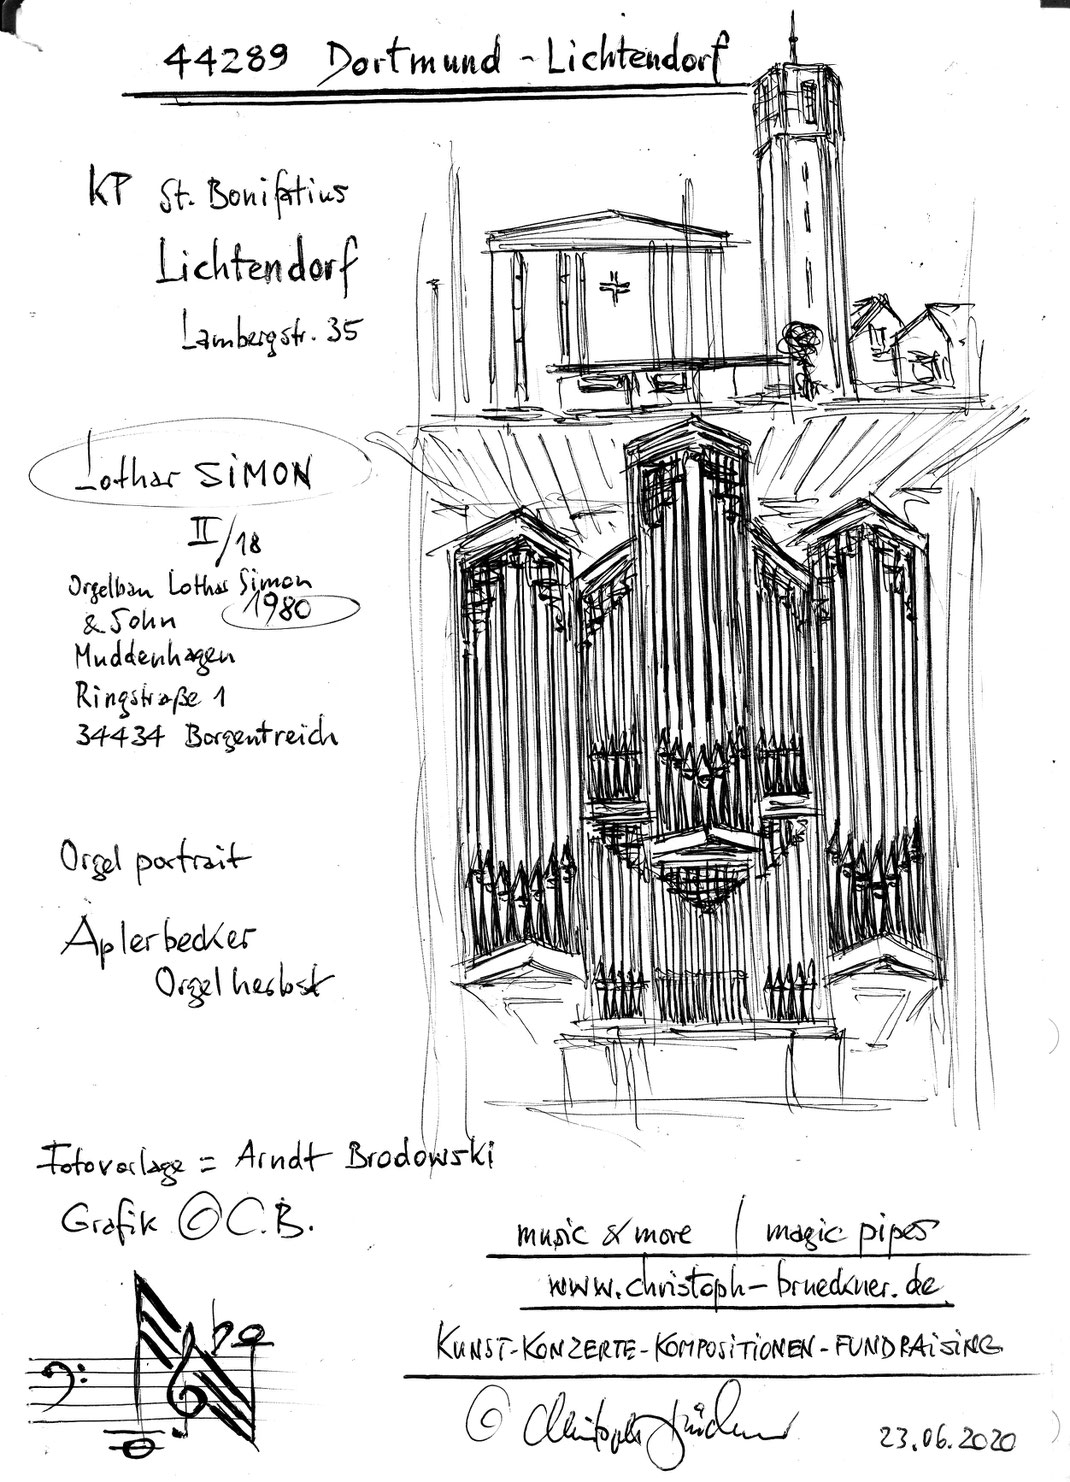 44289 Dortmund - Lichtendorf
KP St. Bonifatius
Lichtendorf
Lambergstr. 35
Lothar SIMON
II/18
Orgelbau Lothar Simon
1980
& Sohn
Muddenhagen
Ringstraße 1
34434 Borgentreich
Orgelportrait
Aplerbecker
Orgelherbst
Fotovorlage = Arndt Brodowski
Grafik © C.B.
music & more / magic pipes
www.christoph-brueckner.de
KUNST-KONZERTE-KOMPOSITIONEN-FUNDRAISING
© Christoph Brückner
23.06.2020